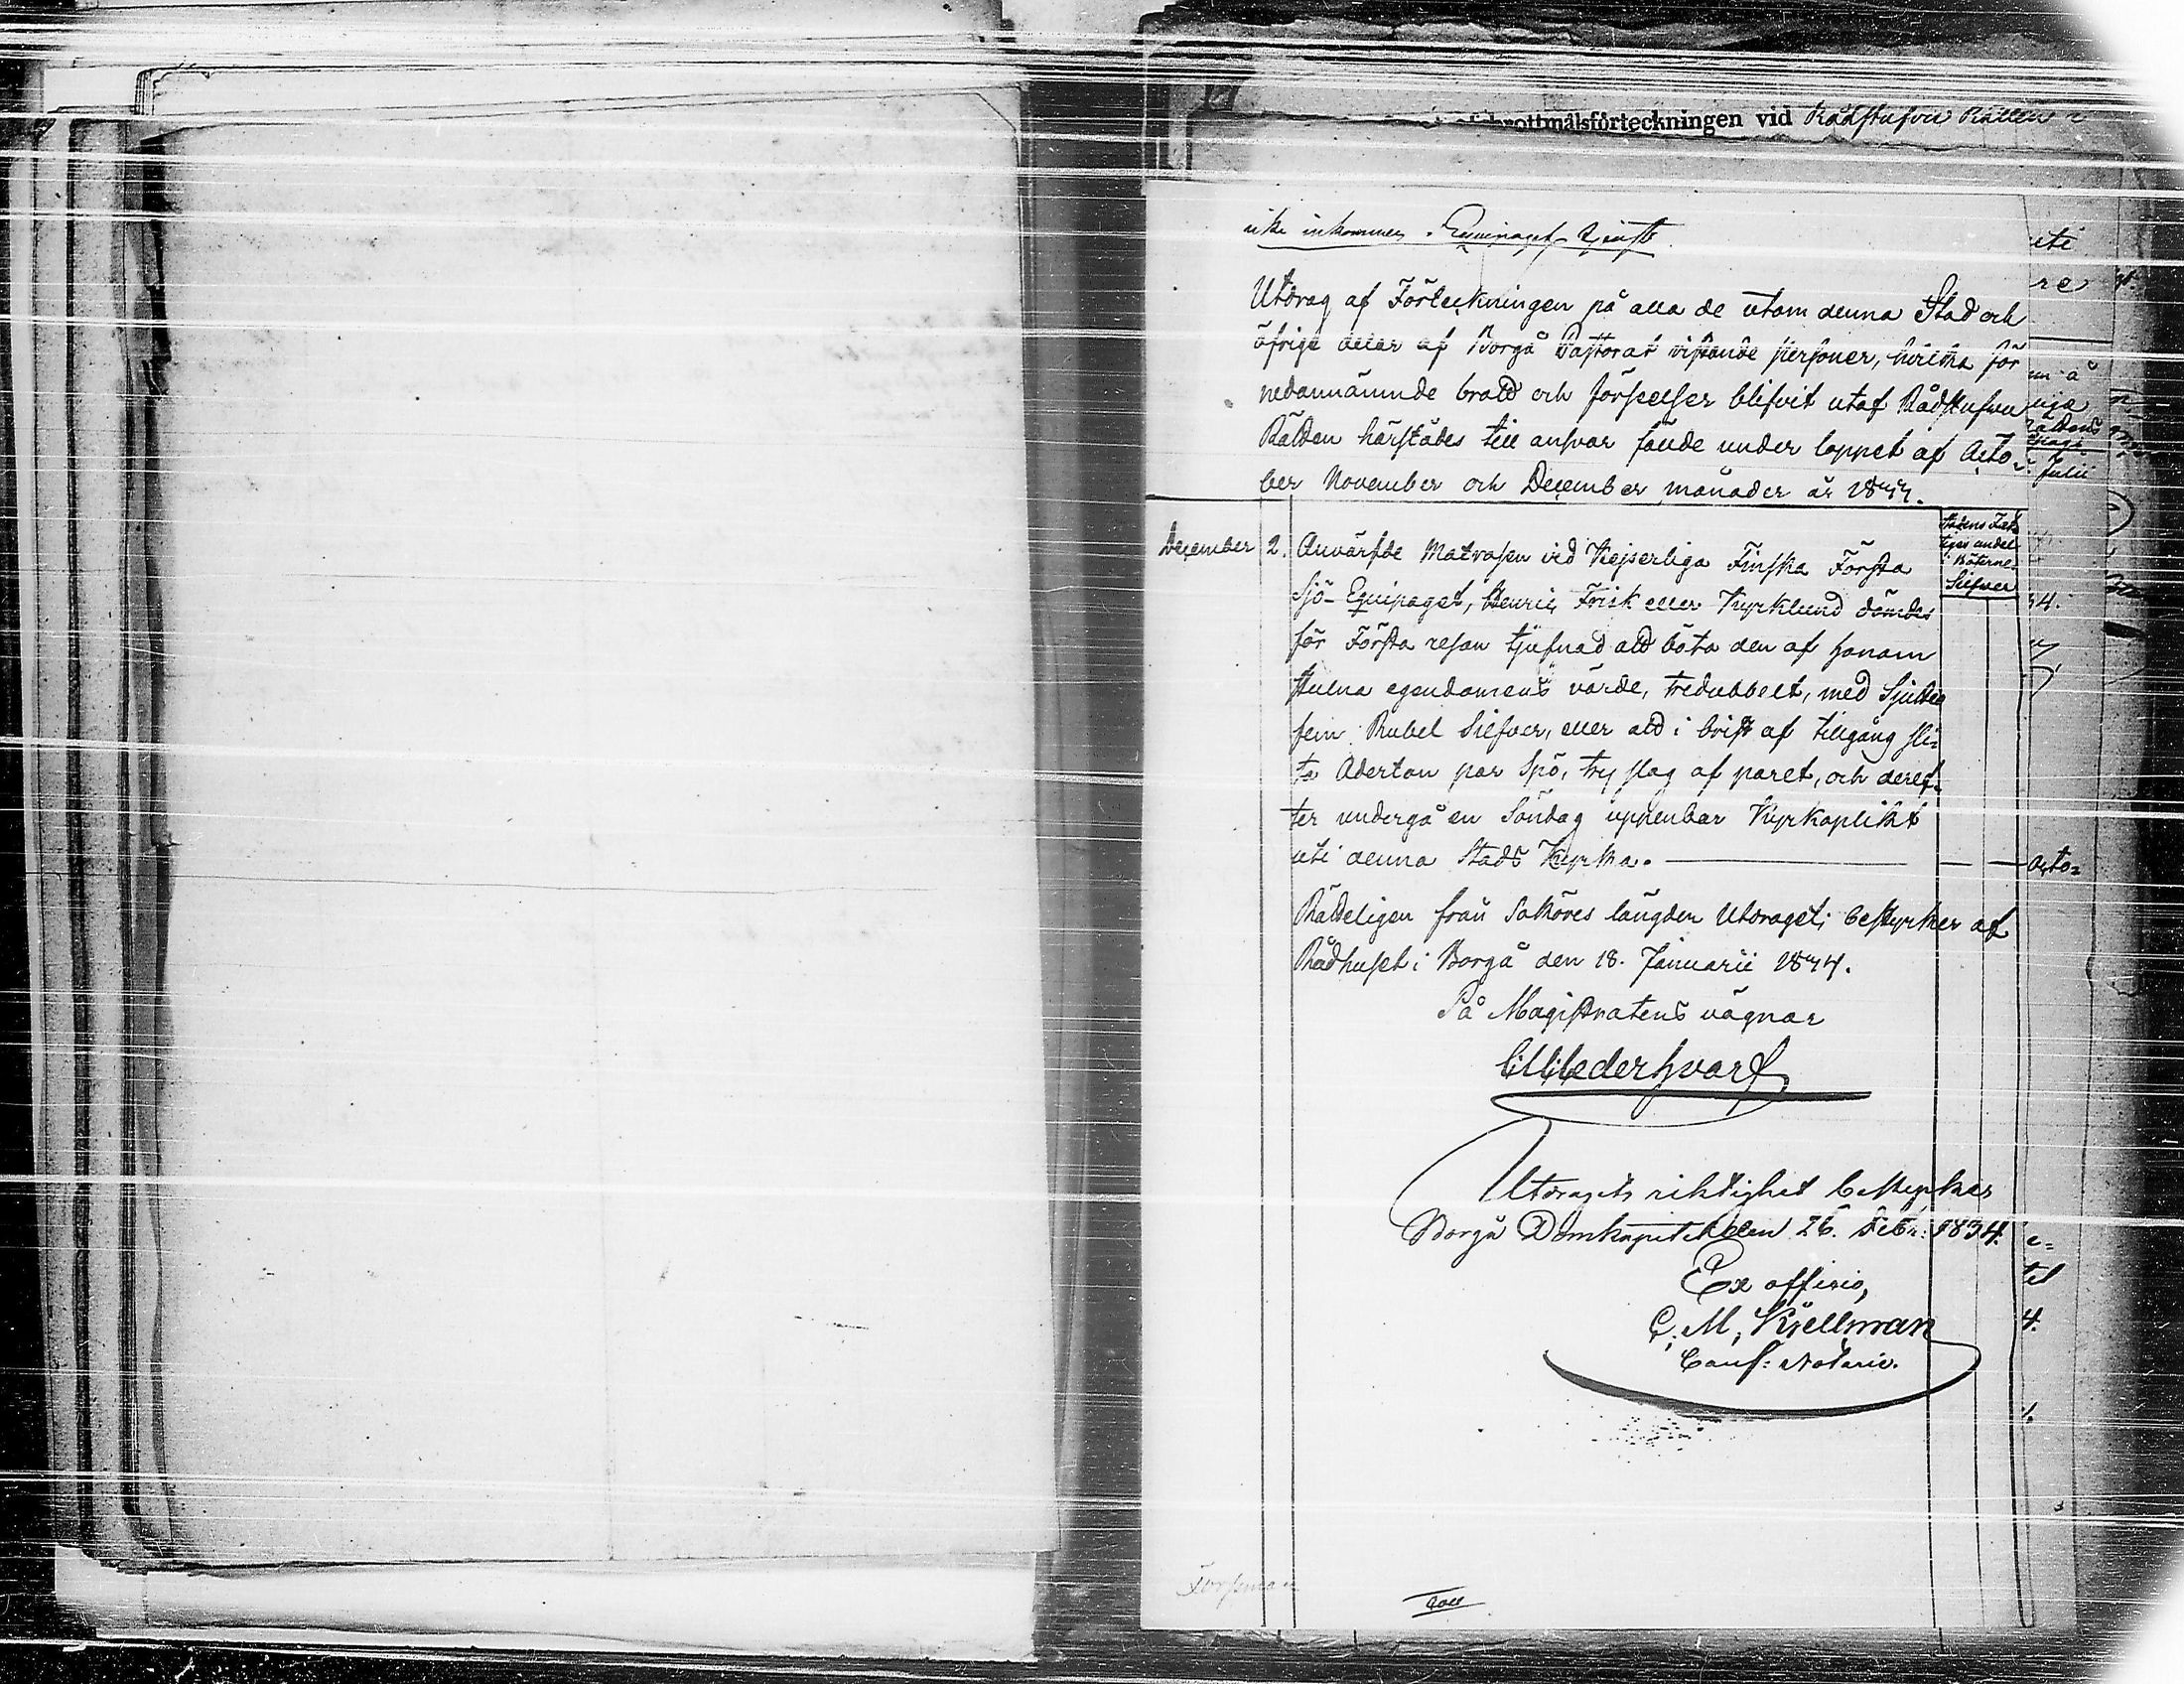 brottmålsförteckningen vid Rådstufvu Rätten
icke inkommen. Equipaget tjenst
Utdrag af Förteckningen på alla de utom denna Stad och
öfrige delar af Borgå Pastorat vistande personer, hvilka för
nedannämnde brott och förseelser blifvit utaf Rådstufvu
Rätten härstädes till ansvar fälde under loppet af Octo-
ber November och December månader år 1833.
December 2. Anvärfde Matrosen vid Kejserliga Finska Första
Sjö-Equipaget, Henric Frisk eller Kyrklund dömdes
för Första resan tjufnad att böta den af honom
stulna egendomens värde, tredubbelt, med Sjutton
fem Rubel Silfver, eller att i brist af tillgång sli-
ta Aderton par Spö, try slag af paret, och deref-
ter undergå en Söndag uppenbar Kyrkoplikt
uti denna Stads Kyrka.
andel
i Böterne
Silfver
Rätteligen från Saköres längden Utdraget; bestyrker af
Rådhuset i Borgå den 18. Januarii 1834.
På Magistratens vägnar
Cederhvarf
Utdragets riktighet bestyrker
Borgå Domkapitel den 26. Febr: 1834.
Ex officio,
C. M. Kjellman
Cons: Notarie.
Forssman
uti
re
Julii
34.
Octo-
e-
til
4.